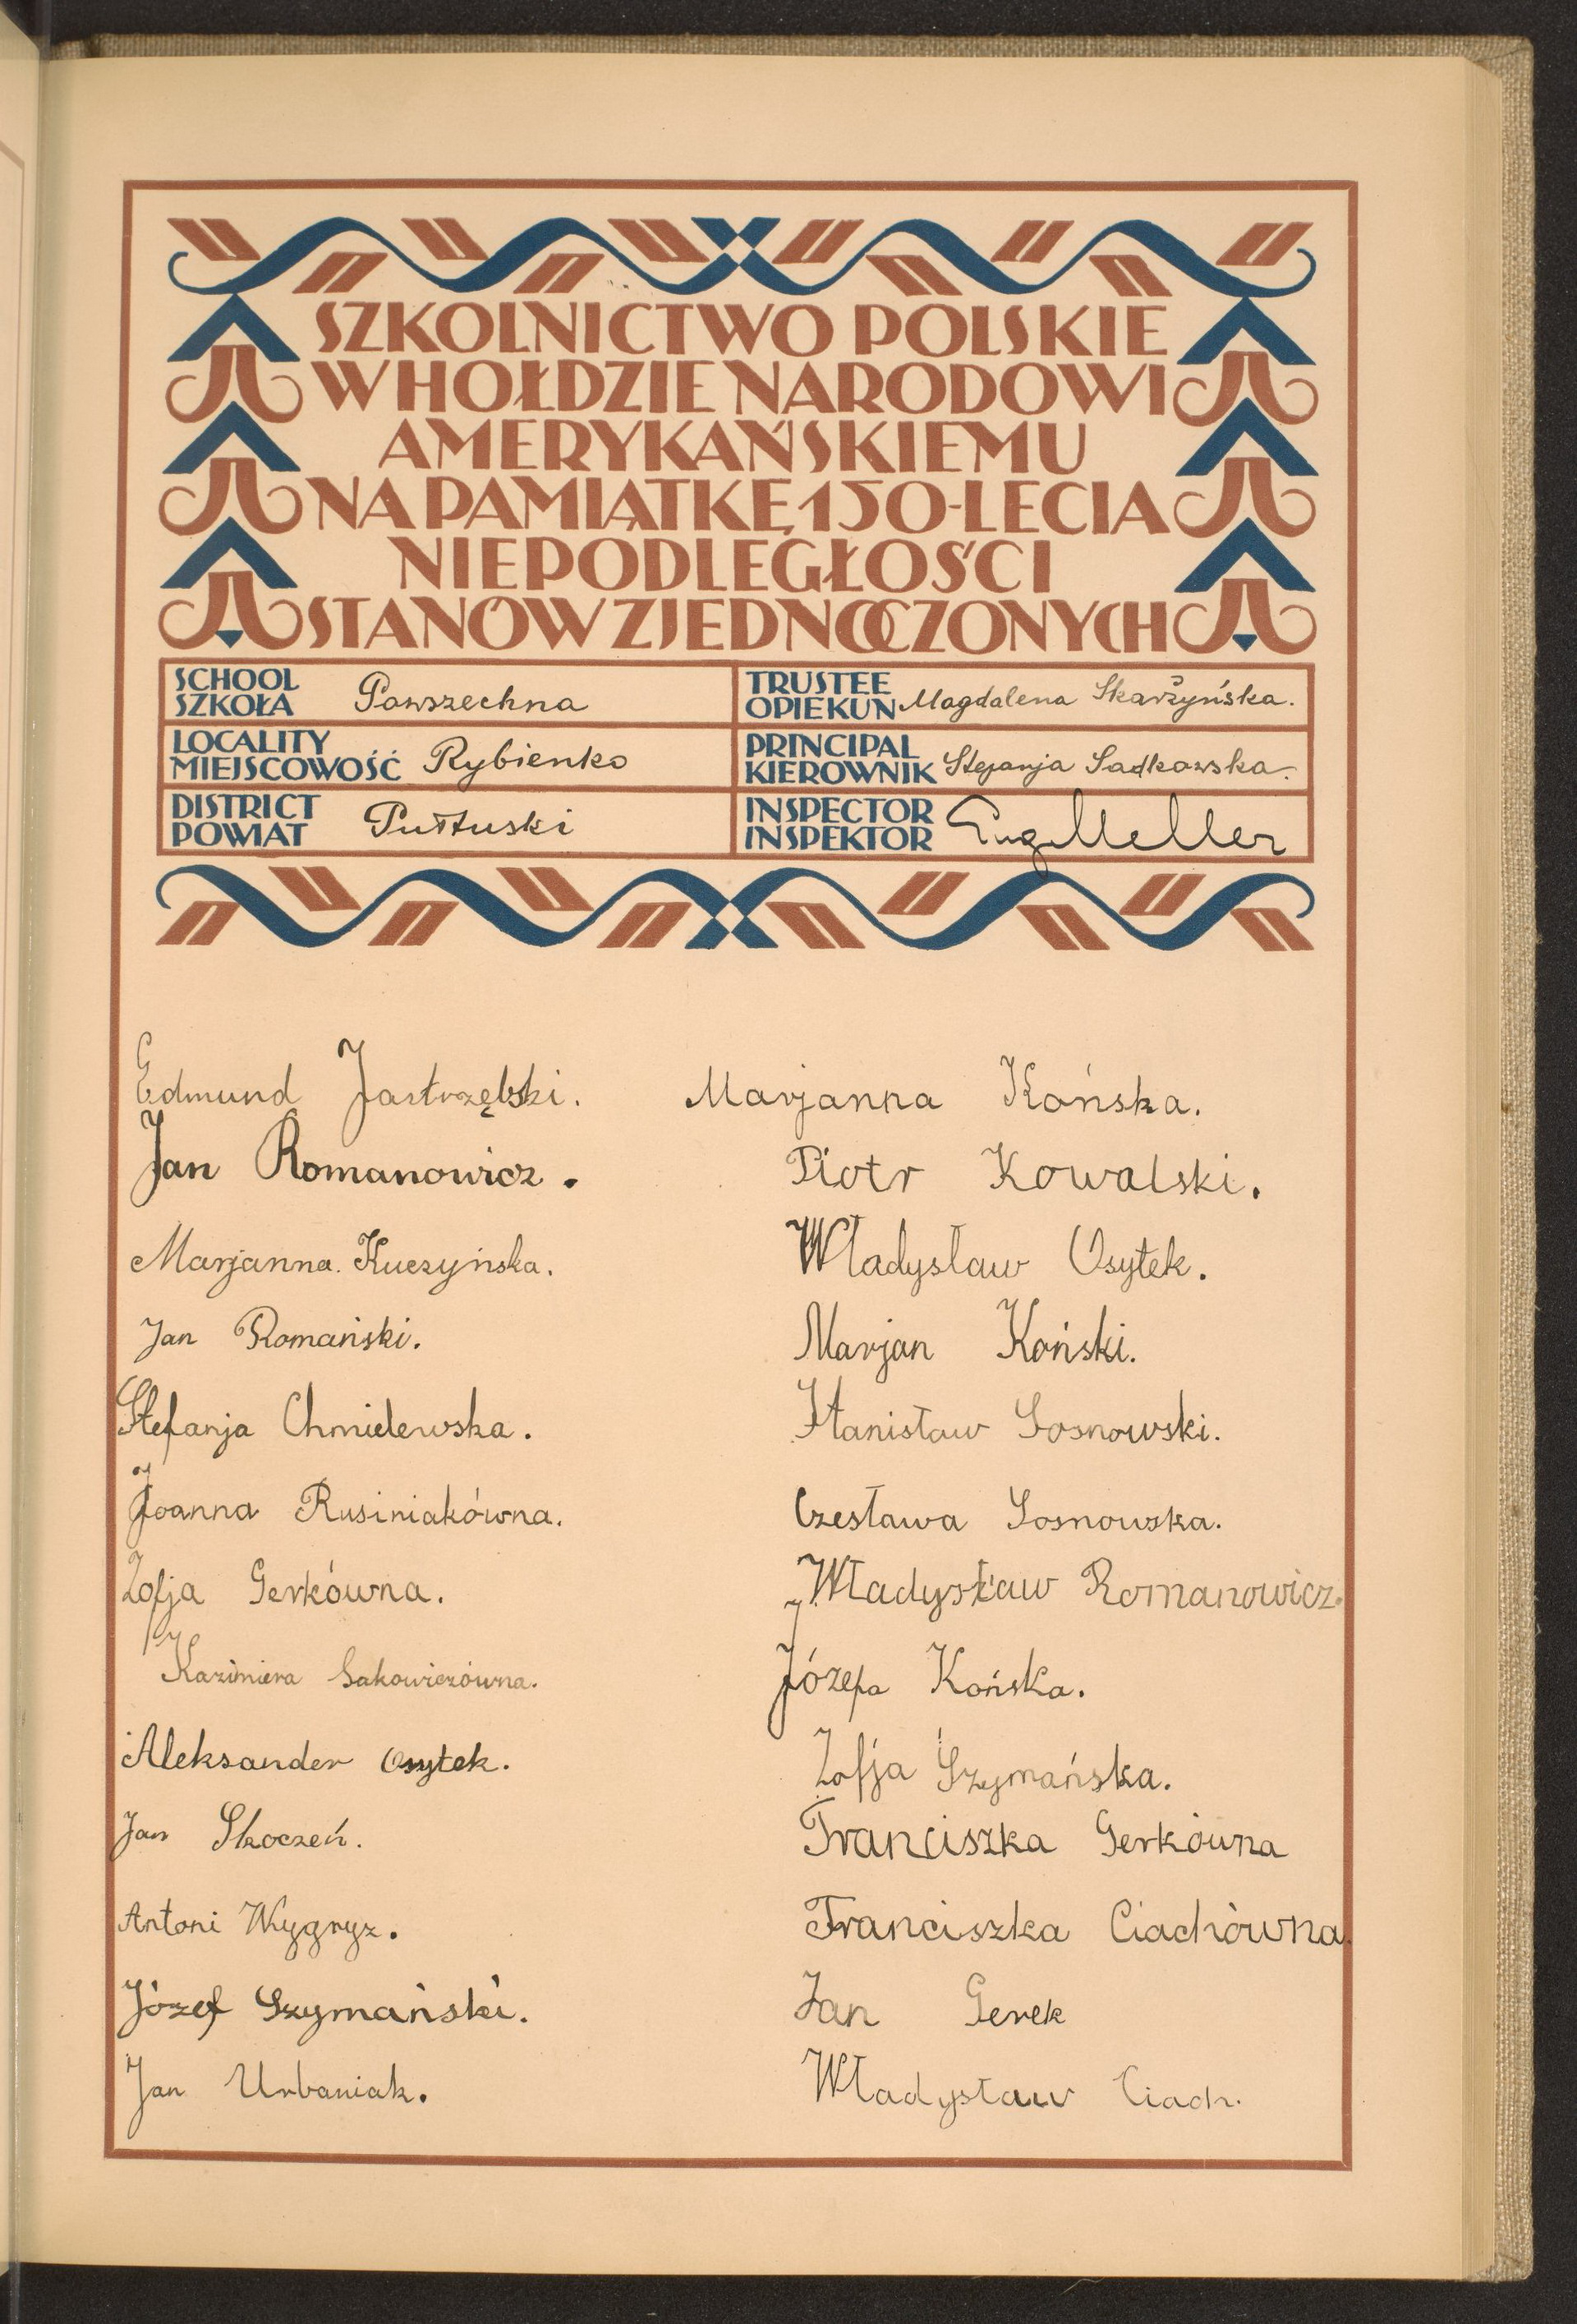 SZKOLNICTWO POLSKIE
W HOŁDZIE NARODOWI
AMERYKAŃSKIEMU
NA PAMIĄTKĘ 150-LECIA
NIEPODLEGŁOŚCI
STANÓW ZJEDNOCZONYCH
SCHOOL
SZKOŁA Powszechna
LOCALITY
MIEJSCOWOŚĆ Rybienko
DISTRICT
POWIAT Pułtuski
TRUSTEE
OPIEKUN Magdalena Skarżyńska.
PRINCIPAL
KIEROWNIK Stefanja Sadkowska.
INSPECTOR
INSPEKTOR Eug Meller
Edmund Jastrzębski.
Jan Romanowicz.
Marjanna Kuczyńska.
Jan Romański.
Stefanja Chmielewska.
Joanna Rusiniakówna.
Zofja Gerkówna.
Kazimiera Sakowiczówna.
Aleksander Osytek.
Jan Skoczeń.
Antoni Wygryz.
Józef Szymański.
Jan Urbaniak.
Marjanna Końska.
Piotr Kowalski.
Władysław Osytek.
Marjan Koński.
Stanisław Sosnowski.
Czesława Sosnowska.
Władysław Romanowicz.
Józefa Końska.
Zofja Szymańska.
Franciszka Gerkówna
Franciszka Ciachówna.
Jan Gerek
Władysław Ciach.